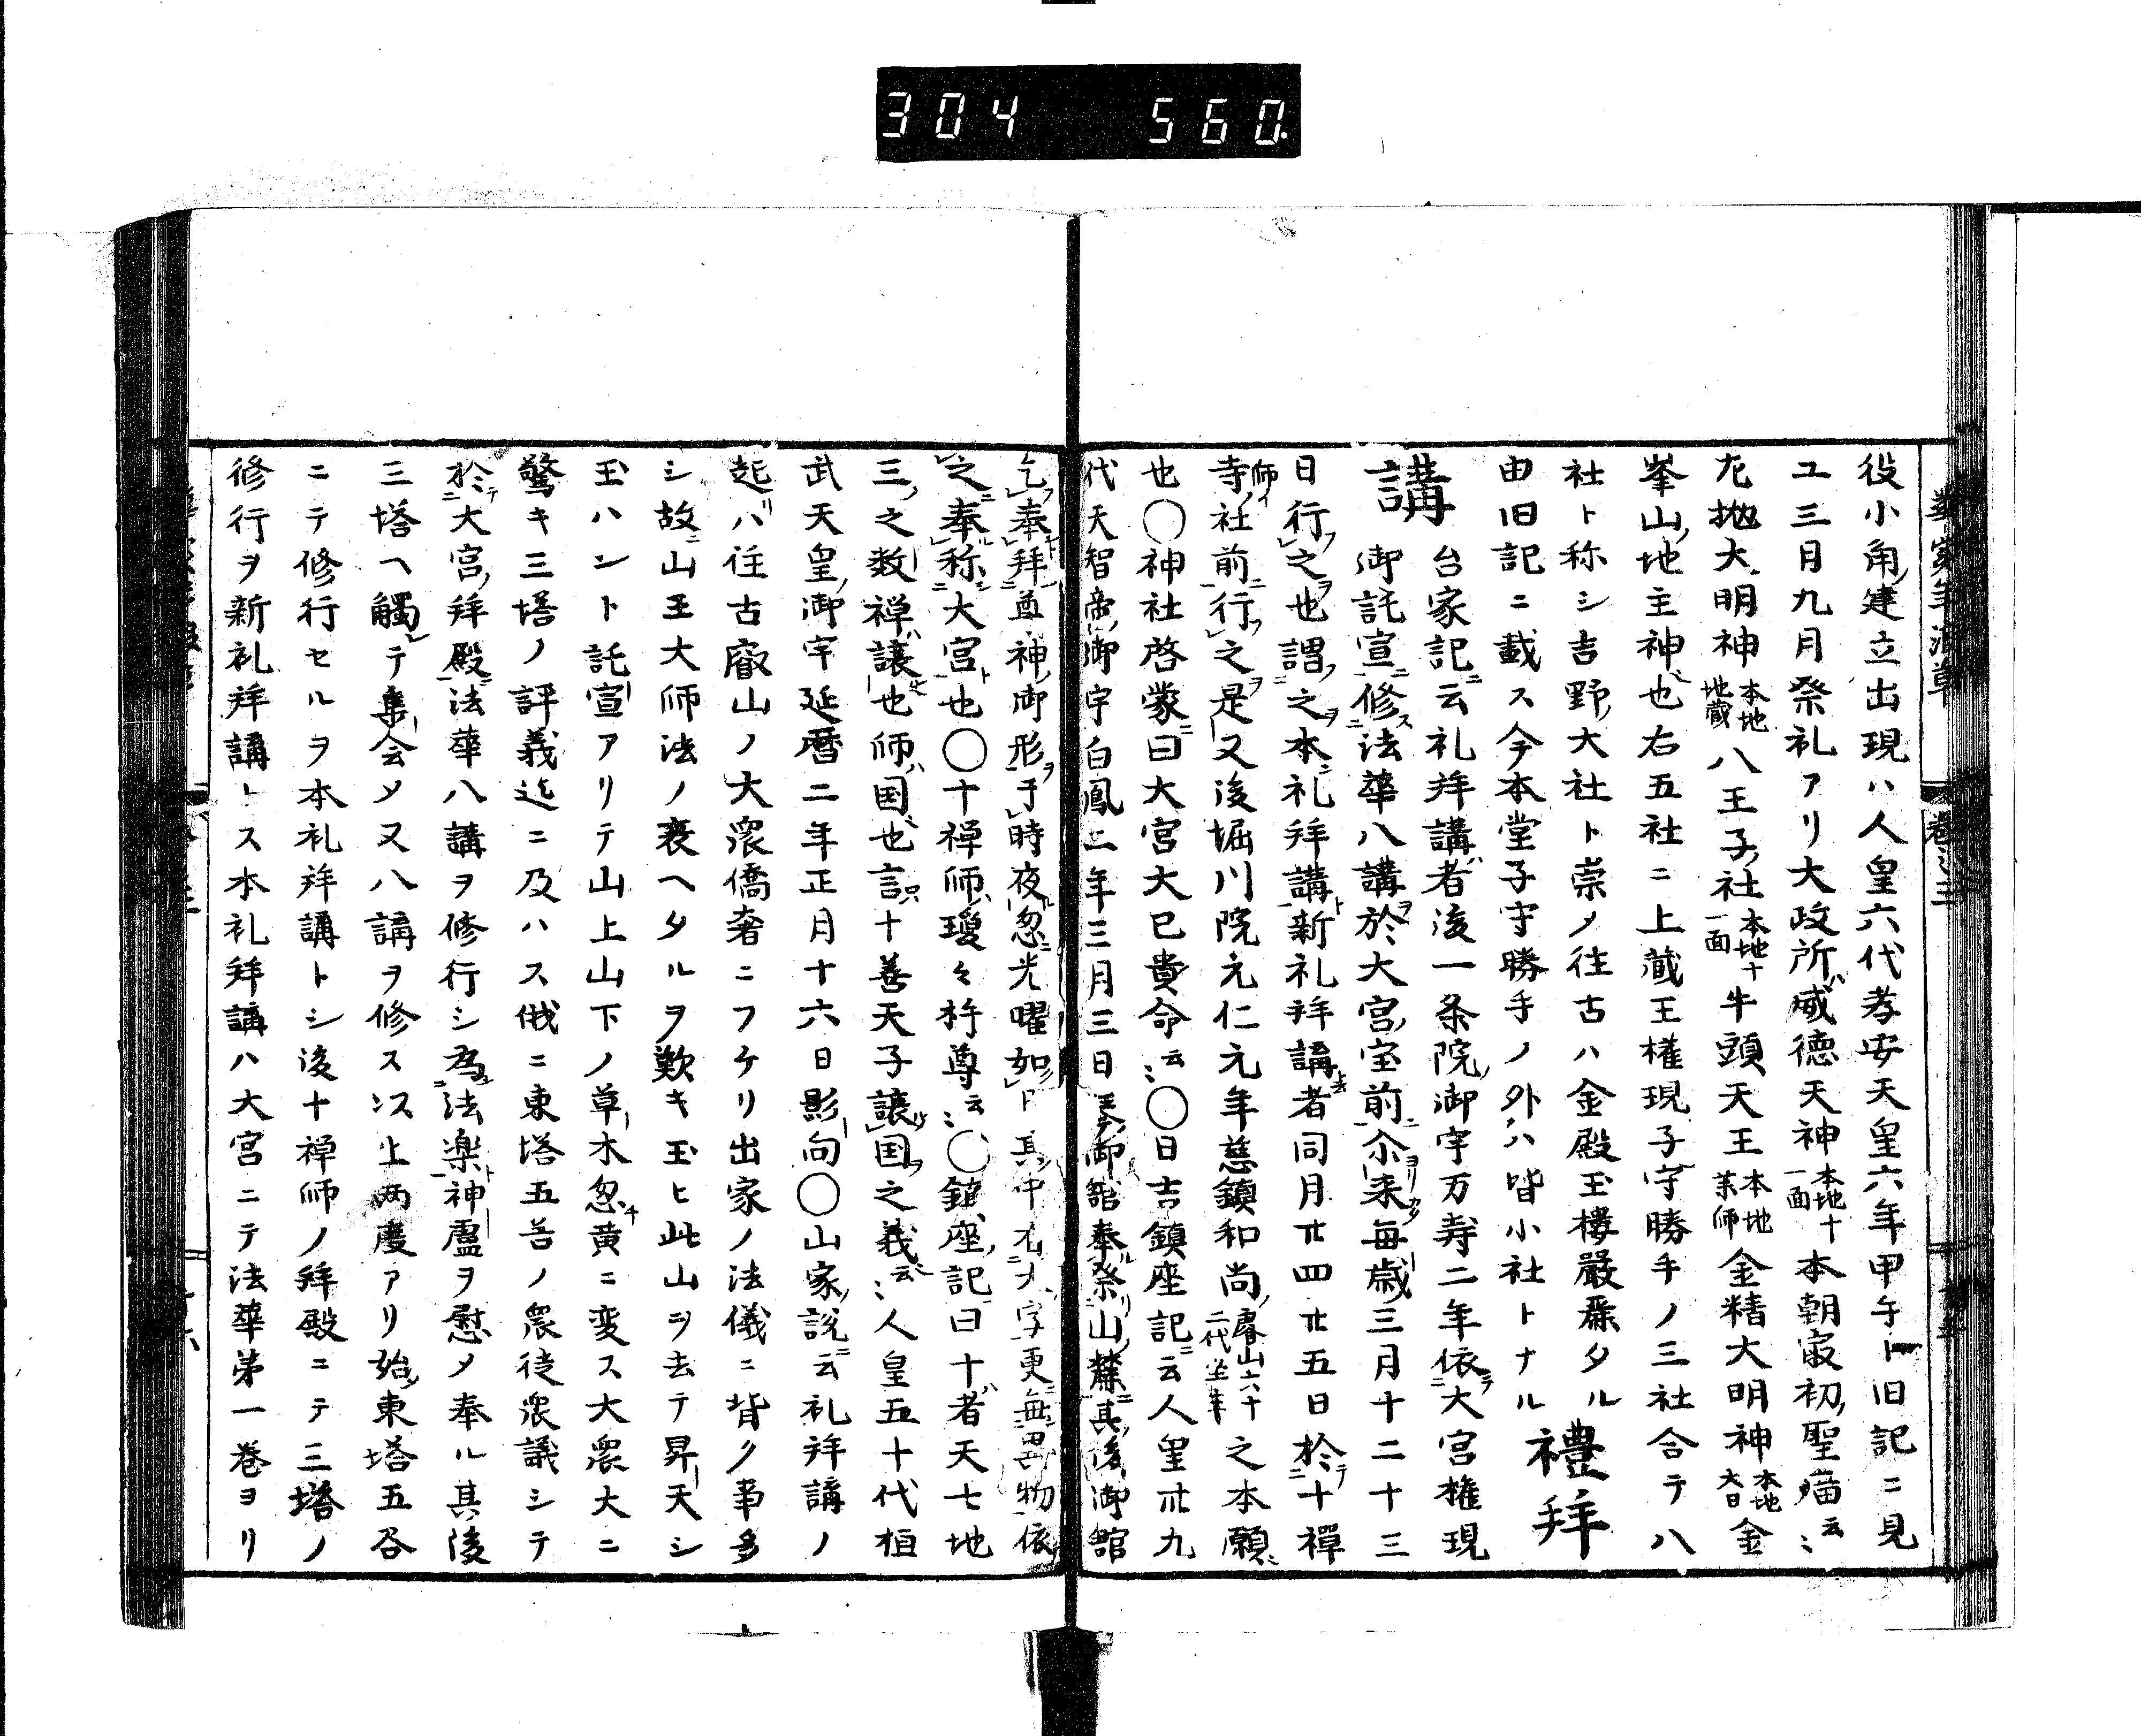 304 560.
華実年浪草 巻之三
役小角建立出現ハ人皇六代孝安天皇六年甲午ト旧記ニ見
ユ三月九月祭礼アリ大政所ハ威徳天神本地十一面本朝最初ノ聖廟云〻
尢地大明神本地地蔵八王子社本地十一面牛頭天王本地薬師金精大明神本地大日金
峯山ノ地主神也右五社ニ上蔵王権現子守勝手ノ三社合テ八
社ト称シ吉野ノ大社ト崇メ往古ハ金殿玉樓嚴麗タル
由旧記ニ載ス今本堂子守勝手ノ外ハ皆小社トナル 禮拜
講 台家記ニ云礼拜講者後一条院ノ御宇万寿二年依テ大宮権現
御託宣ニ修ス法華八講ヲ於大宮ノ宝前ニ尓来毎歳三月十二十三
日行フ之ヲ也謂フ之ヲ本礼拜講ト新礼拜講者同月廿四廿五日於テ十禪
師ノ社前ニ行フ之ヲ是又後堀川院元仁元年慈鎮和尚睿山六十二代坐主之本願
也〇神社啓蒙ニ曰大宮大巳貴命云〻〇日吉鎮座記ニ云人皇卅九
代天智帝ノ御宇白鳳二年三月三日御舘奉祭山ノ麓ニ其後御舘
乞奉拜尊神ノ御形ヲ于時夜忽ニ光曜如日其中有大字更無畳物依
之奉称シ大宮ト也〇十禅師ハ瓊々杵尊云〻〇鎮座記曰十者天七地
三ノ之数禅ハ譲也師ハ国也言ハ十善天子譲国ヲ之義云〻人皇五十代桓
武天皇ノ御宇延暦二年正月十六日影向〇山家ノ説ニ云礼拜講ノ
起リハ往古叡山ノ大衆僑奢ニフケリ出家ノ法儀ニ背ク事多
シ故ニ山王大師法ノ衰ヘタルヲ歎キ玉ヒ此山ヲ去テ昇天シ
玉ハント託宣アリテ山上山下ノ草木忽チ黄ニ変ス大衆大ニ
驚キ三塔ノ評義迄ニ及ハス俄ニ東塔五谷ノ衆徒衆議シテ
於テ大宮ノ拜殿ニ法華八講ヲ修行シ為法楽ト神慮ヲ慰メ奉ル其後
三塔ヘ觸レテ集会メ又八講ヲ修ス以上両度アリ始ノ東塔五谷
ニテ修行セルヲ本礼拜講トシ後十禅師ノ拜殿ニテ三塔ノ
修行ヲ新礼拜講トス本礼拜講ハ大宮ニテ法華第一巻ヨリ